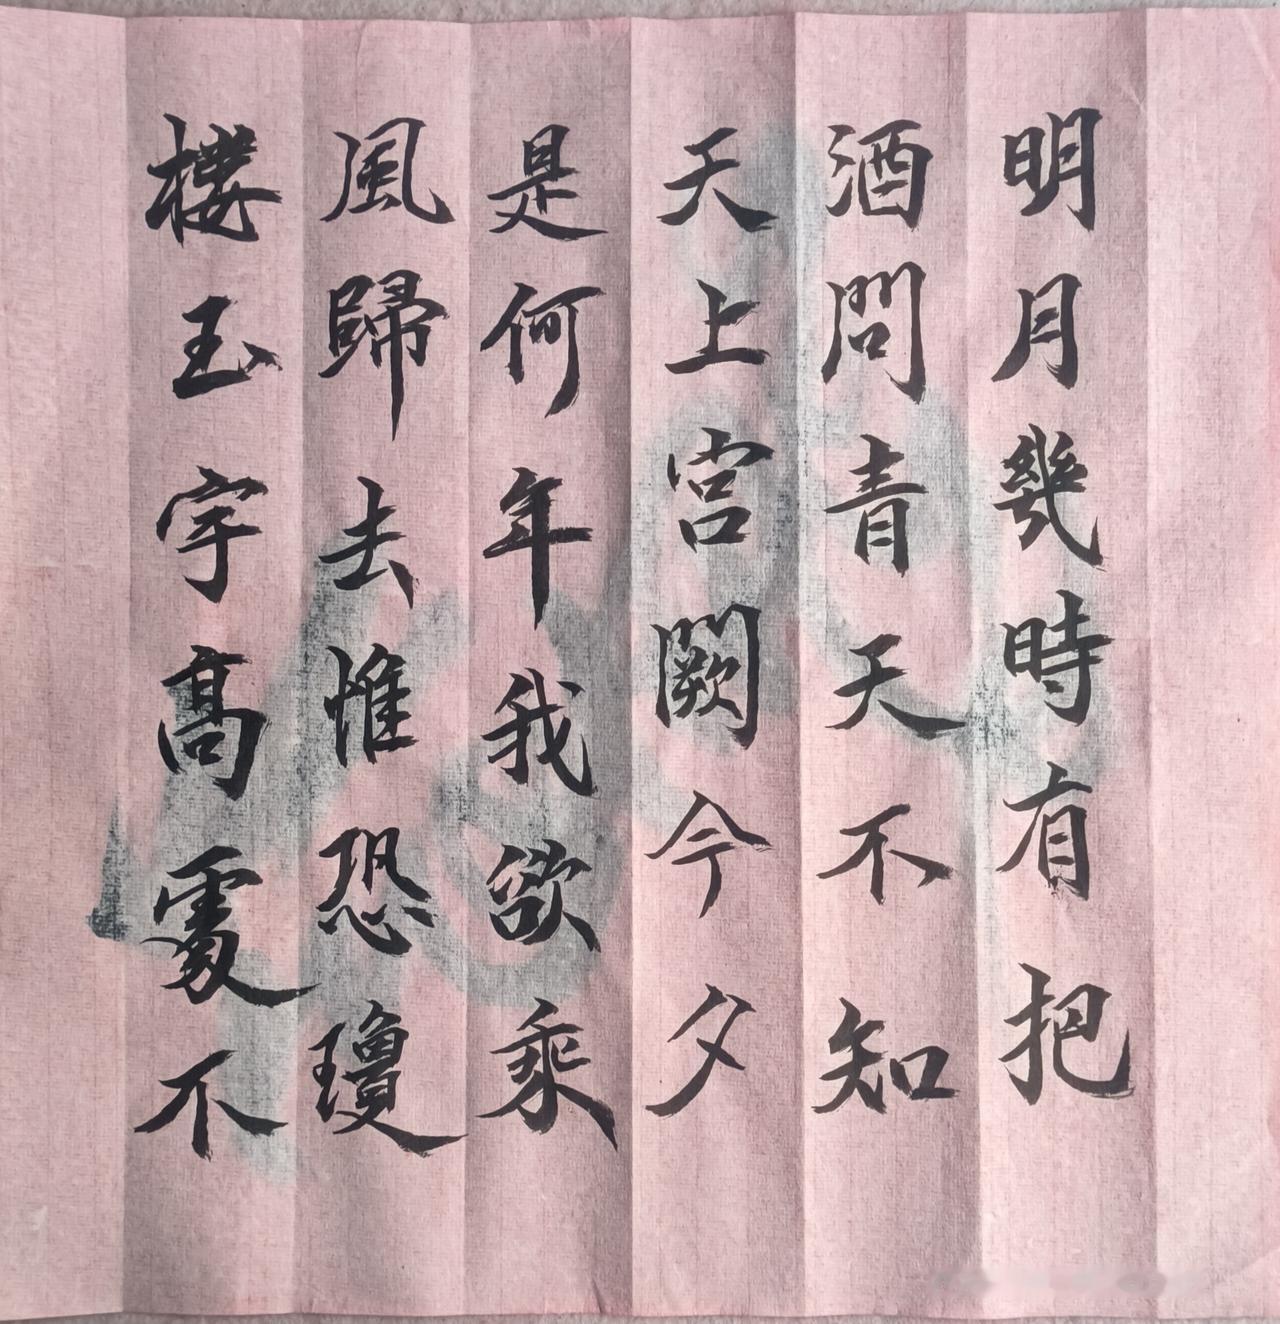 明月幾時有把
酒問青天不知
天上宮闕今夕
是何年我欲乘
風歸去惟恐瓊
樓玉宇高處不